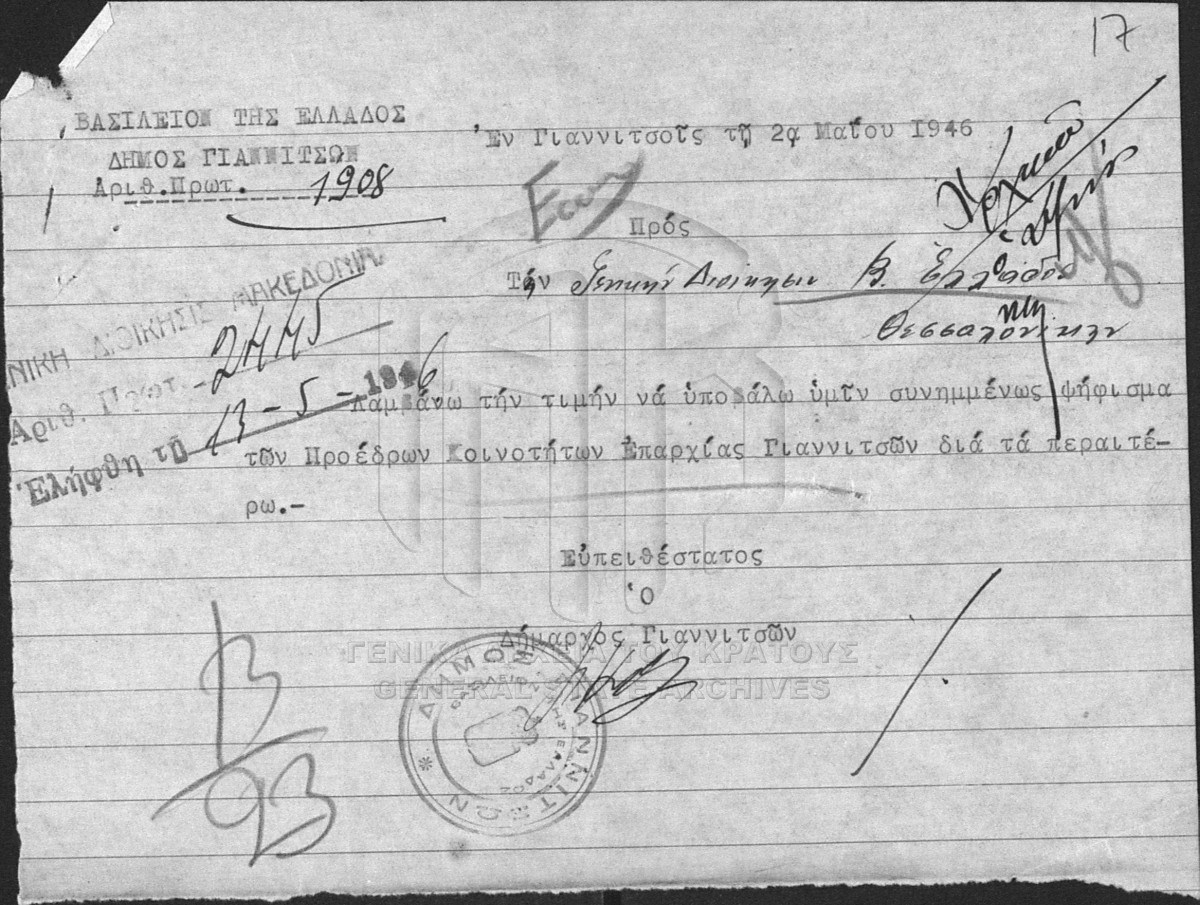 17
ΒΑΣΙΛΕΙΟΝ ΤΗΣ ΕΛΛΑΔΟΣ
ΔΗΜΟΣ ΓΙΑΝΝΙΤΣΩΝ
Αριθ.Πρωτ. 1908
Ἐν Γιαννιτσοῖς τῇ 2α Μαΐου 1946
Πρός
Τήν Γενικήν Διοίκησιν Β. Ἑλλάδος
Θεσσαλονίκην
ΝΙΚΗ ΔΙΟΙΚΗΣΙΣ ΜΑΚΕΔΟΝΙΑ
Αριθ. Πρωτ. 2445
Ἐλήφθη τῇ 13-5-1946
Λαμβάνω τήν τιμήν νά ὑποβάλω ὑμῖν συνημμένως ψήφισμα
τῶν Προέδρων Κοινοτήτων Ἐπαρχίας Γιαννιτσῶν διά τά περαιτέ-
ρω.-
Εὐπειθέστατος
Ὁ
Δήμαρχος Γιαννιτσῶν
ΔΗΜΟΣ ΓΙΑΝΝΙΤΣΩΝ
ΒΑΣΙΛΕΙΟΝ ΤΗΣ ΕΛΛΑΔΟΣ
ΓΕΝΙΚΑ ΑΡΧΕΙΑ ΤΟΥ ΚΡΑΤΟΥΣ
GENERAL STATE ARCHIVES